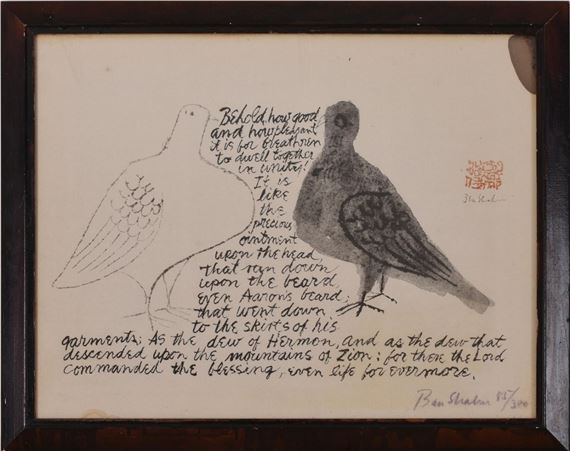 Behold, how good
and how pleasant
it is for breathren
to dwell together
in unity!
It is
like
the
precious
ointment
upon the head,
that ran down
upon the beard
even Aaron's beard;
that went down
to the skirts of his
garments; As the dew of Hermon, and as the dew that
descended upon the mountains of Zion: for there the Lord
commanded the blessing, even life for evermore.
Ben Shahn
Ben Shahn 85/300